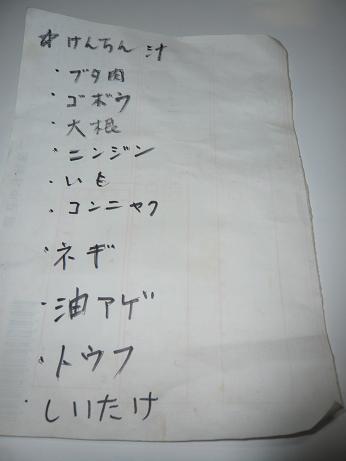 ☆けんちん汁
・ブタ肉
・ゴボウ
・大根
・ニンジン
・いも
・コンニャク
・ネギ
・油アゲ
・トウフ
・しいたけ